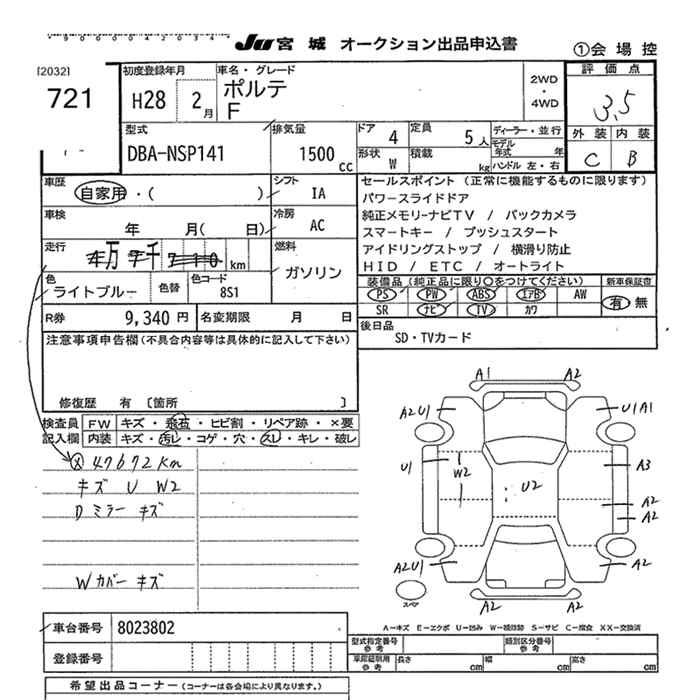 JU 宮城 オークション出品申込書
①会場控
[2032]
721
初度登録年月
H28 2月
車名・グレード
ポルテ
F
2WD
・
4WD
評価点
3.5
外装 内装
C B
型式
DBA-NSP141
排気量
1500 cc
ドア 4
定員 5人
ディーラー・並行
モデル年式 年
形状 W
積載 kg
ハンドル 左・右
車歴
自家用・( )
シフト
IA
車検
年 月( 日)
冷房
AC
走行
km
燃料
ガソリン
色
ライトブルー
色替
色コード
8S1
セールスポイント (正常に機能するものに限ります)
パワースライドドア
純正メモリーナビTV / バックカメラ
スマートキー / プッシュスタート
アイドリングストップ / 横滑り防止
HID / ETC / オートライト
装備品(純正品に限り○をつけてください)
新車保証書
PS PW ABS エアB AW
SR ナビ TV カワ
有 無
R券 9,340円
名変期限 月 日
後日品
SD・TVカード
注意事項申告欄(不具合内容等は具体的に記入して下さい)
修復歴 有 〔箇所 〕
検査員
記入欄
FW キズ・飛石・ヒビ割・リペア跡・×要
内装 キズ・汚レ・コゲ・穴・スレ・キレ・破レ
ⓧ 47672km
キズ U W2
D ミラー キズ
W カバー キズ
A1 A2
A2U1 U1A1
U1 W2 U2 A3
A2
A2
A2U1 A2
A2 A2
スペア
A－キズ E－エクボ U－凹み W－補修跡 S－サビ C－腐食 XX－交換済
車台番号 8023802
登録番号
型式指定番号
参考
類別区分番号
参考
車庫証明用
参考
長さ cm 幅 cm 高さ cm
希望出品コーナー(コーナーは各会場により異なります。)